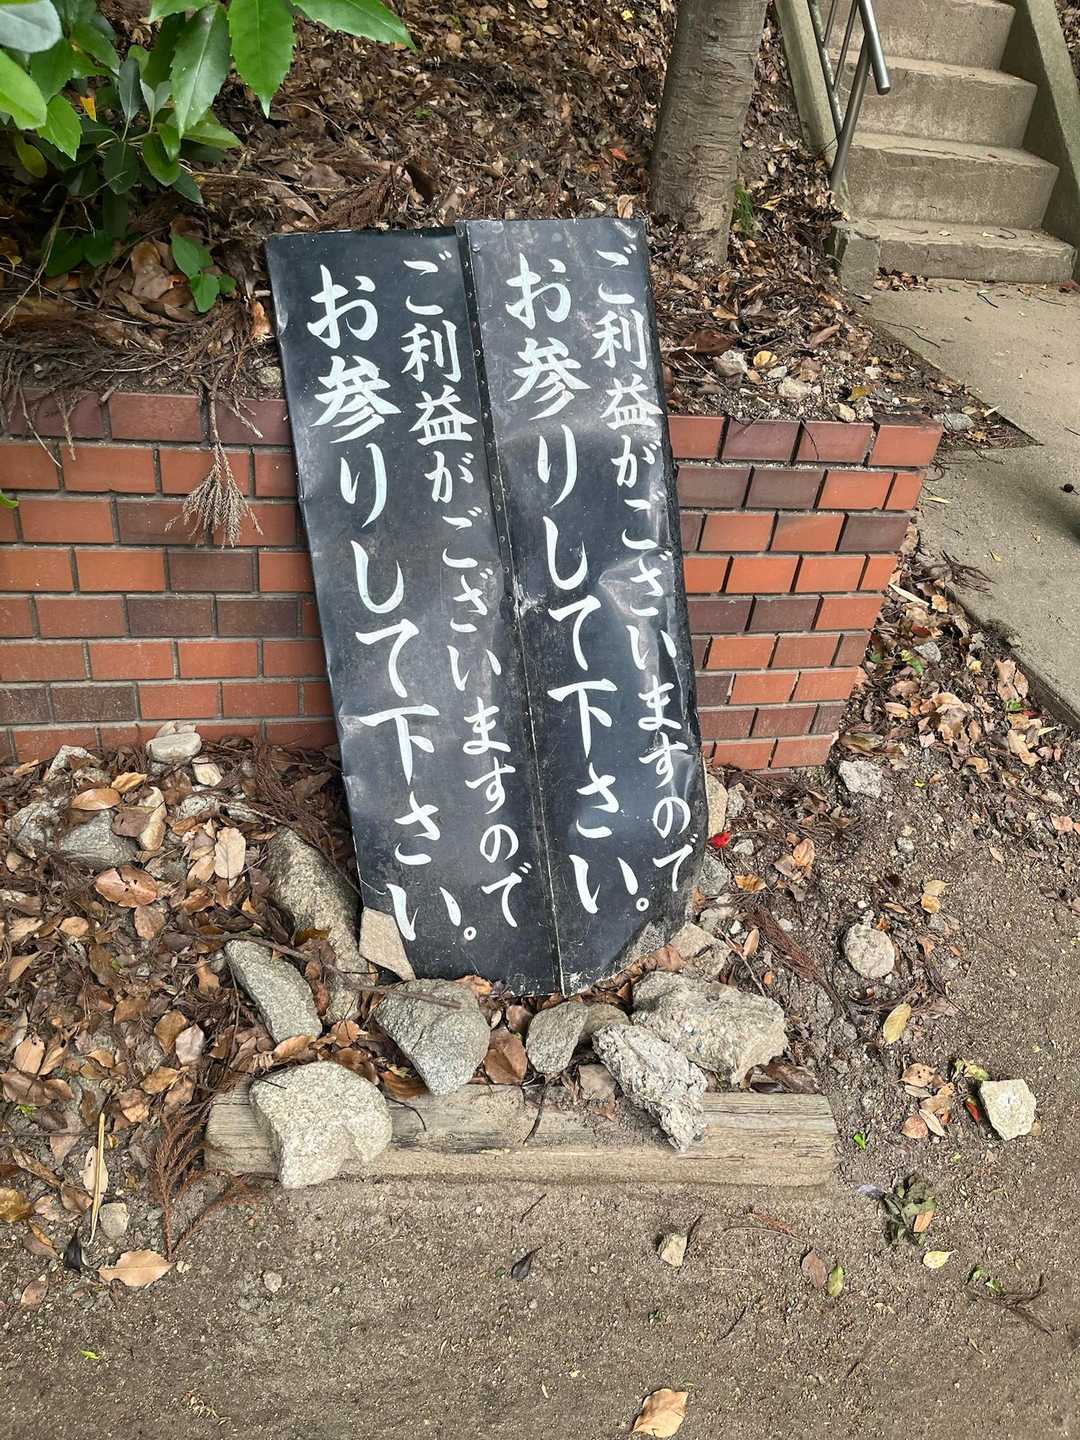 ご利益がございますので
お参りして下さい。
ご利益がございますので
お参りして下さい。